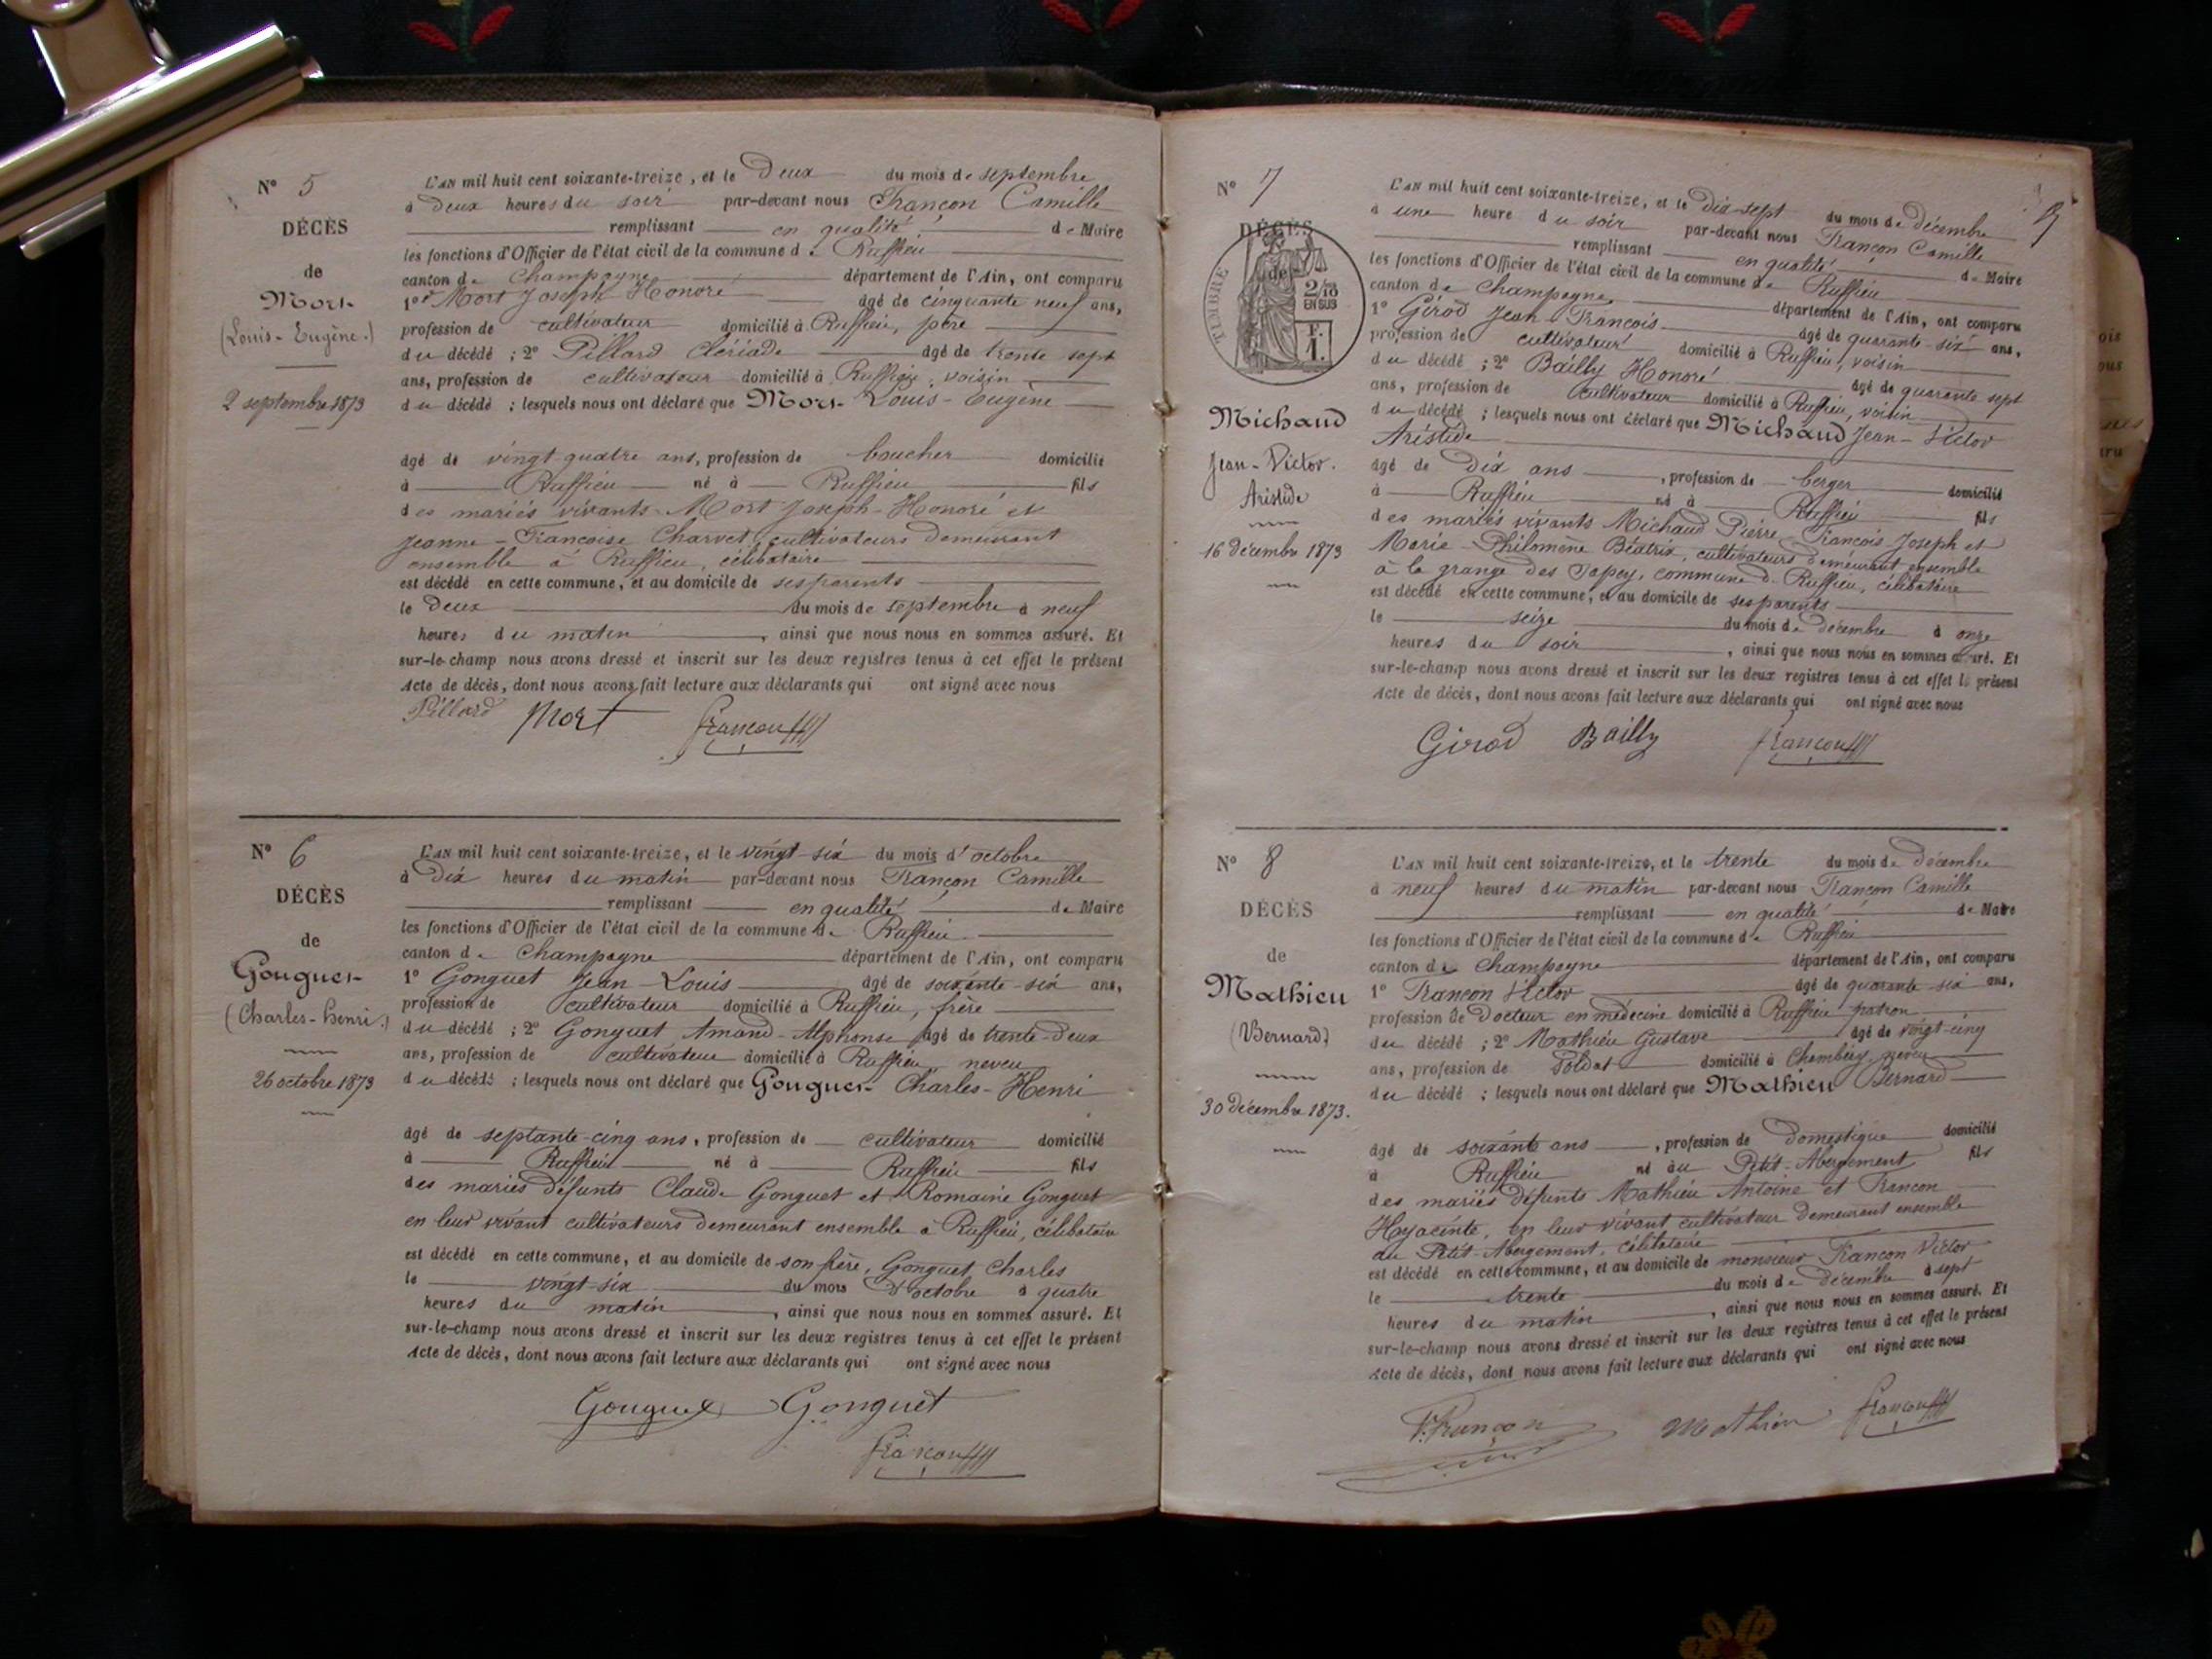 N° 5
DÉCÈS
de
Mort
(Louis-Eugène.)
2 septembre 1873
L'AN mil huit cent soixante-treize, et le Deux du mois de septembre
à deux heures du soir par-devant nous Françon Camille
remplissant en qualité de Maire
les fonctions d'Officier de l'état civil de la commune de Ruffieu
canton de Champagne département de l'Ain, ont comparu
1° Mort Joseph Honoré âgé de cinquante neuf ans,
profession de cultivateur domicilié à Ruffieu, père
du décédé ; 2° Pillard Clériade âgé de trente sept
ans, profession de cultivateur domicilié à Ruffieu, voisin
du décédé ; lesquels nous ont déclaré que Mort Louis-Eugène
âgé de vingt quatre ans, profession de boucher domicilié
à Ruffieu né à Ruffieu fils
des mariés vivants Mort Joseph-Honoré et
Jeanne-Françoise Charvet, cultivateurs demeurant
ensemble à Ruffieu, célibataire
est décédé en cette commune, et au domicile de ses parents
le deux du mois de septembre à neuf
heures du matin, ainsi que nous nous en sommes assuré. Et
sur-le-champ nous avons dressé et inscrit sur les deux registres tenus à cet effet le présent
Acte de décès, dont nous avons fait lecture aux déclarants qui ont signé avec nous
Pillard Mort françon
N° 6
DÉCÈS
de
Gonguet
(Charles-henri.)
26 octobre 1873
L'AN mil huit cent soixante-treize, et le vingt-six du mois d'octobre
à Dix heures du matin par-devant nous Françon Camille
remplissant en qualité de Maire
les fonctions d'Officier de l'état civil de la commune de Ruffieu
canton de Champagne département de l'Ain, ont comparu
1° Gonguet Jean-Louis âgé de soixante-six ans,
profession de cultivateur domicilié à Ruffieu, frère
du décédé ; 2° Gonguet Amand-Alphonse âgé de trente-deux
ans, profession de cultivateur domicilié à Ruffieu, neveu
du décédé ; lesquels nous ont déclaré que Gonguet Charles-Henri
âgé de septante-cinq ans, profession de cultivateur domicilié
à Ruffieu né à Ruffieu fils
des mariés défunts Claude Gonguet et Romaine Gonguet
en leur vivant cultivateurs demeurant ensemble à Ruffieu, célibataire
est décédé en cette commune, et au domicile de son frère, Gonguet Charles
le vingt-six du mois d'octobre à quatre
heures du matin, ainsi que nous nous en sommes assuré. Et
sur-le-champ nous avons dressé et inscrit sur les deux registres tenus à cet effet le présent
Acte de décès, dont nous avons fait lecture aux déclarants qui ont signé avec nous
Gonguet Gonguet
françon
N° 7
DÉCÈS
de
TIMBRE
2/10
EN SUS
F.
1.
Michaud
Jean-Victor.
Aristide
16 décembre 1873
L'AN mil huit cent soixante-treize, et le dix-sept du mois de décembre
à une heure du soir par-devant nous Françon Camille
remplissant en qualité de Maire
les fonctions d'Officier de l'état civil de la commune de Ruffieu
canton de Champagne département de l'Ain, ont comparu
1° Girod Jean-François âgé de quarante-six ans,
profession de cultivateur domicilié à Ruffieu, voisin
du décédé ; 2° Bailly Honoré âgé de quarante sept
ans, profession de cultivateur domicilié à Ruffieu, voisin
du décédé ; lesquels nous ont déclaré que Michaud Jean-Victor
Aristide
âgé de Dix ans, profession de berger domicilié
à Ruffieu né à Ruffieu fils
des mariés vivants Michaud Pierre-François Joseph et
Marie-Philomène Béatrix, cultivateurs demeurant ensemble
à la grange des Sapey, commune de Ruffieu, célibataire
est décédé en cette commune, et au domicile de ses parents
le seize du mois de décembre à onze
heures du soir, ainsi que nous nous en sommes assuré. Et
sur-le-champ nous avons dressé et inscrit sur les deux registres tenus à cet effet le présent
Acte de décès, dont nous avons fait lecture aux déclarants qui ont signé avec nous
Girod Bailly françon
N° 8
DÉCÈS
de
Mathieu
(Bernard)
30 décembre 1873.
L'AN mil huit cent soixante-treize, et le trente du mois de décembre
à neuf heures du matin par-devant nous Françon Camille
remplissant en qualité de Maire
les fonctions d'Officier de l'état civil de la commune de Ruffieu
canton de Champagne département de l'Ain, ont comparu
1° Françon Victor âgé de quarante six ans,
profession de Docteur en médecine domicilié à Ruffieu patron
du décédé ; 2° Mathieu Gustave âgé de vingt-cinq
ans, profession de Soldat domicilié à Chambéry, neveu
du décédé ; lesquels nous ont déclaré que Mathieu Bernard
âgé de soixante ans, profession de domestique domicilié
à Ruffieu né au Petit-Abergement fils
des mariés défunts Mathieu Antoine et Françon
Hyacinte, en leur vivant cultivateur demeurant ensemble
au Petit-Abergement, célibataire
est décédé en cette commune, et au domicile de monsieur Françon Victor
le trente du mois de décembre à sept
heures du matin, ainsi que nous nous en sommes assuré. Et
sur-le-champ nous avons dressé et inscrit sur les deux registres tenus à cet effet le présent
Acte de décès, dont nous avons fait lecture aux déclarants qui ont signé avec nous
V. Françon Mathieu françon